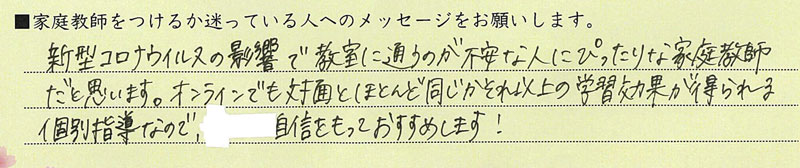 ■家庭教師をつけるか迷っている人へのメッセージをお願いします。
新型コロナウイルスの影響で教室に通うのが不安な人にぴったりな家庭教師
だと思います。オンラインでも対面とほとんど同じかそれ以上の学習効果が得られる
個別指導なので、自信をもっておすすめします！